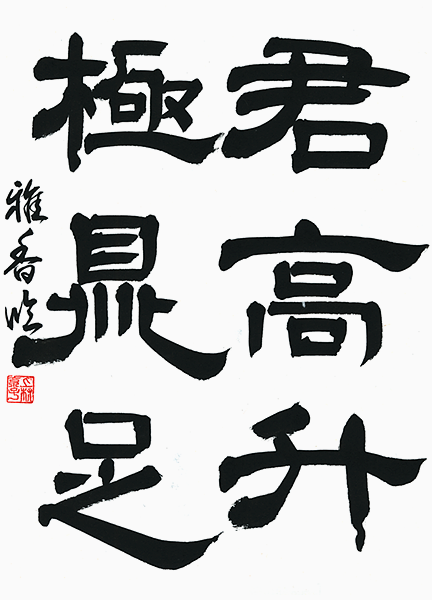 君高升
極鼎足
雅香臨